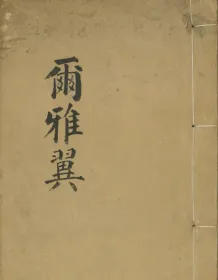 爾雅翼